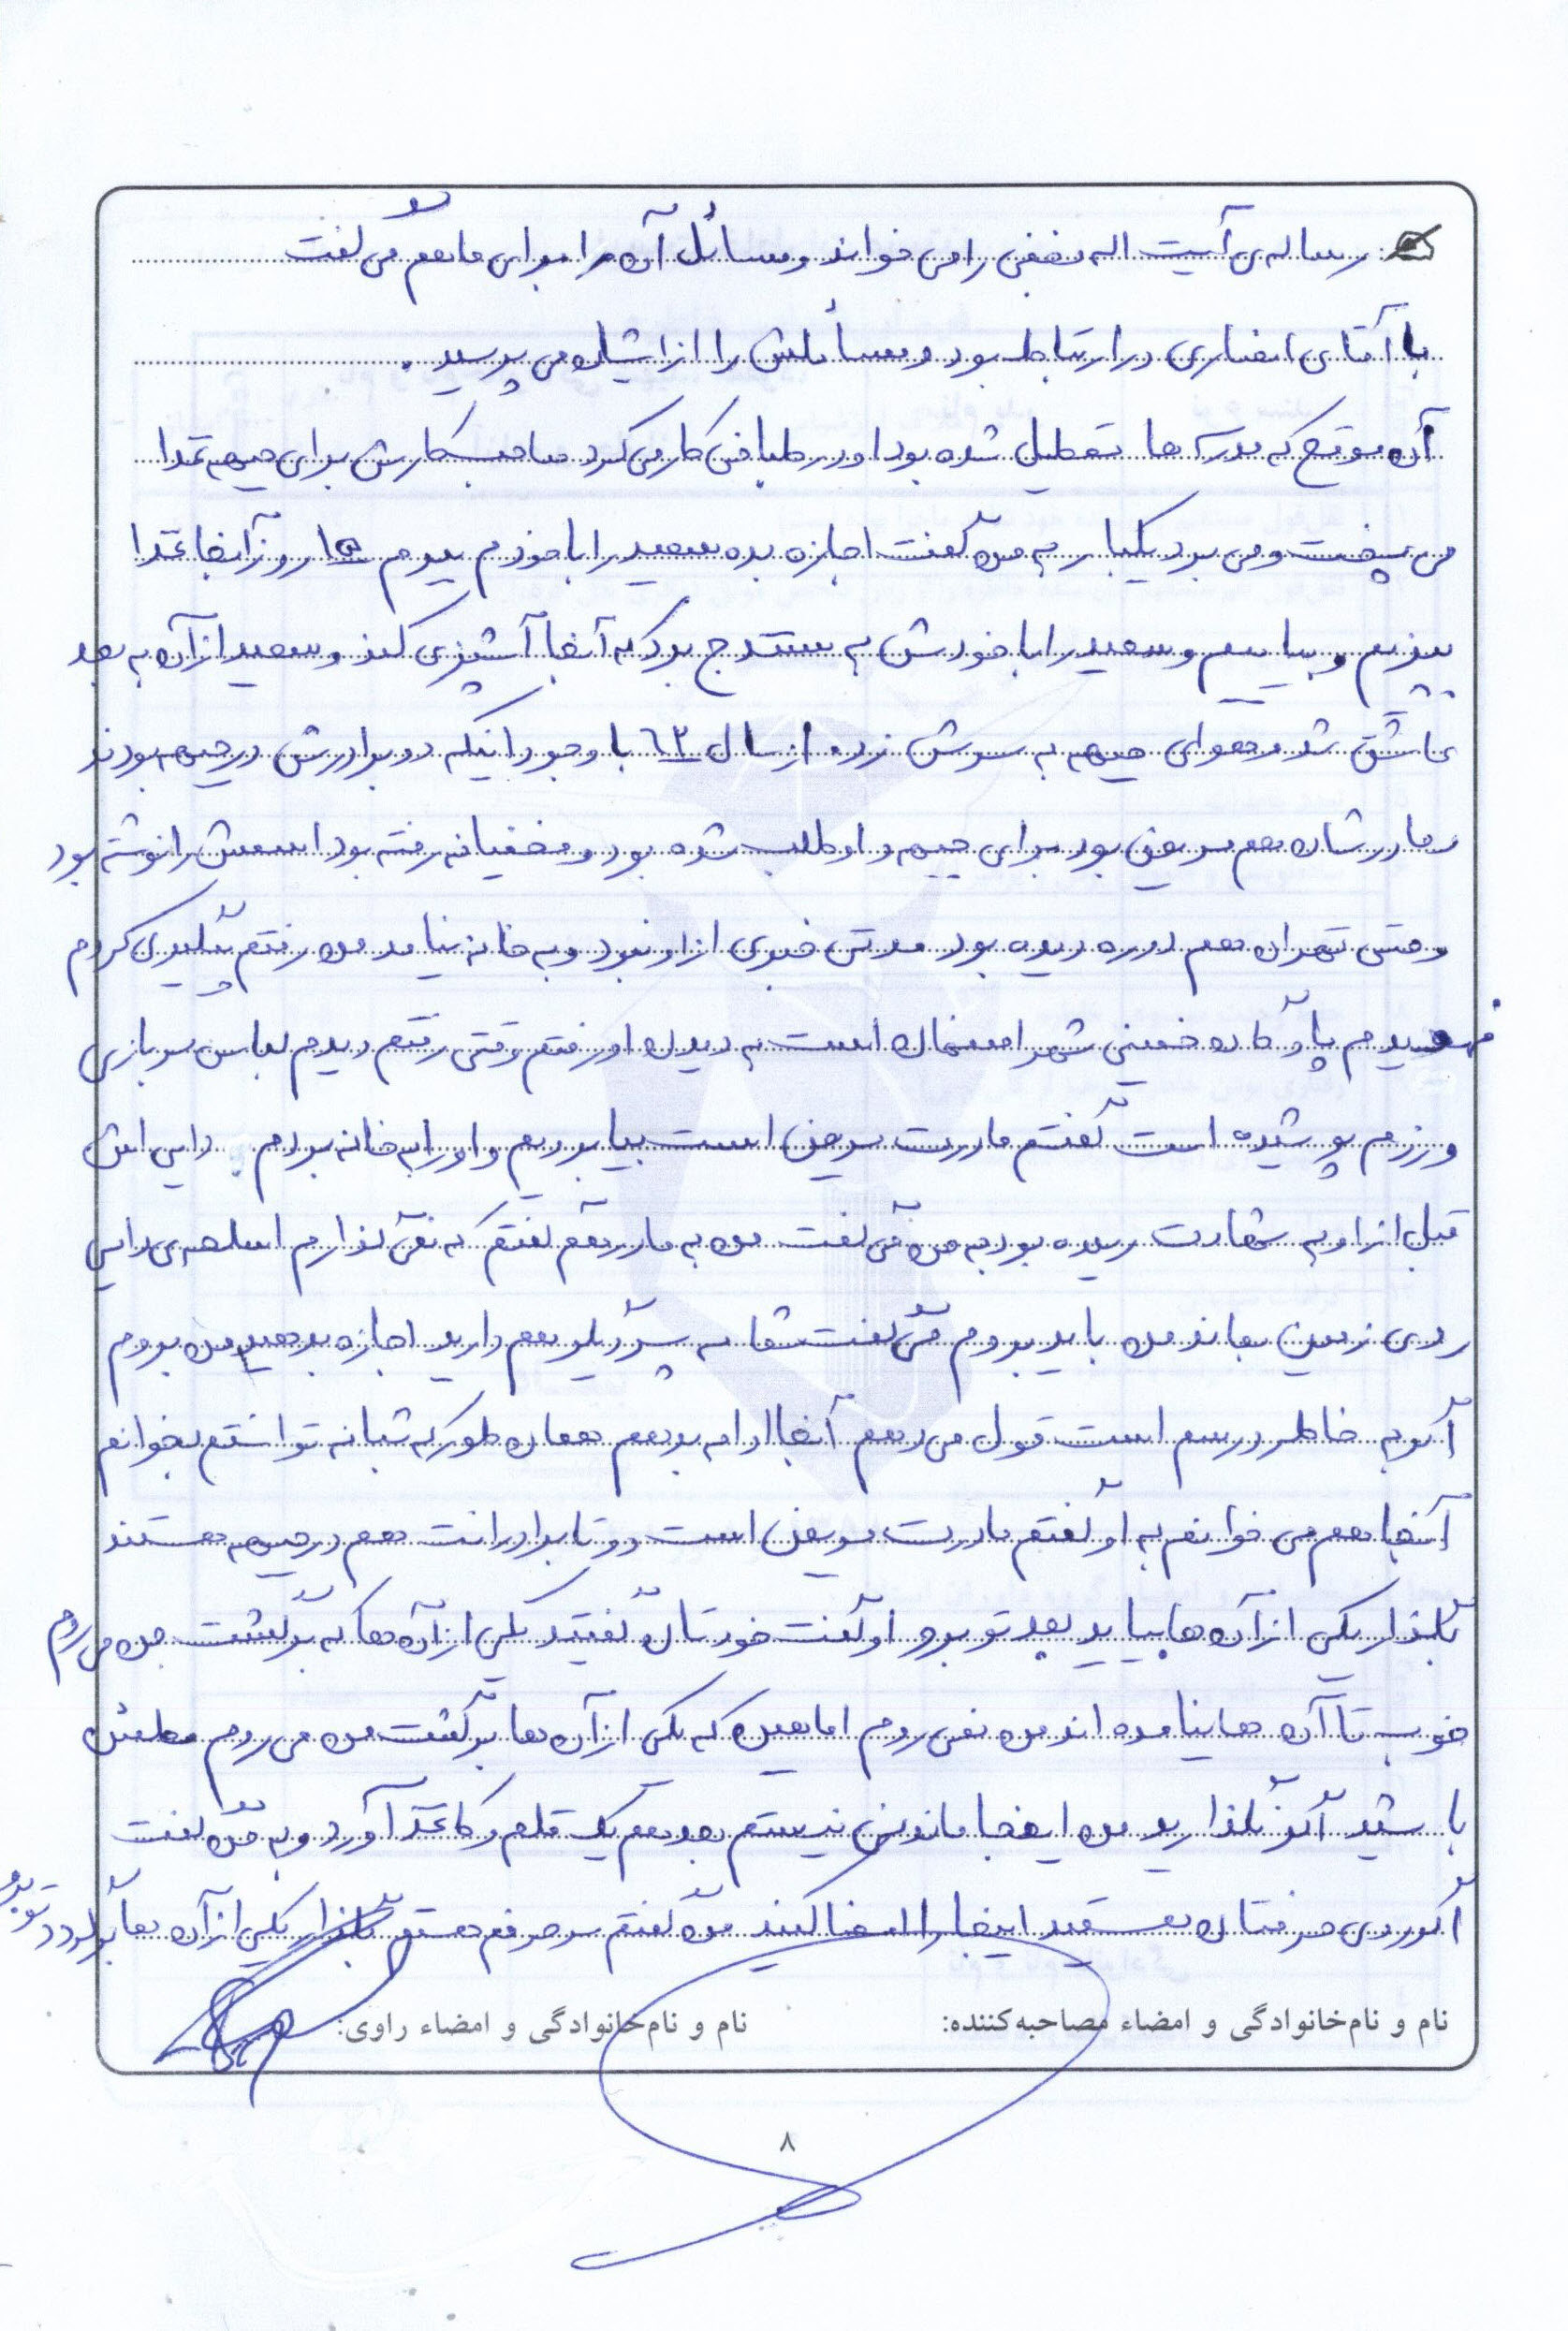 رساله‌ی آیت اله نجفی را می خواند و مسائل آن را برای ما هم می گفت
با آقای انصاری در ارتباط بود و مسائلش را از ایشان می پرسید .
آن موقع که مدرسه ها تعطیل شده بود او در طلبافی کار می کرد صاحب کارش برای جبهه غذا
می پخت و می برد یکبار به من گفت اجازه بده سعید را با خودم ببرم ۱۵ روز آنجا غذا
بپزیم و بیاییم و سعید را با خودش به سنندج برد که آنجا آشپزی کند و سعید از آن به بعد
عاشق شد و هوای جبهه به سرش زد از سال ۶۲ با وجود اینکه دو برادرش در جبهه بودند
مادرشان هم مریض بود برای جبهه داوطلب شده بود و مخفیانه رفته بود اسمش را نوشته بود
وحتی تهران هم دوره دیده بود مدتی خبری از او نبود و به خانه نیامد من رفتم پیگیری کردم
فهمیدم پادگان خمینی شهر اصفهان است به دیدن او رفتم وقتی رفتم دیدم لباس سربازی
و رزم پوشیده است گفتم مادرت مریض است بیا برویم و او را به خانه بردم . دایی اش
قبل از او به شهادت رسیده بود به من می گفت من به مادر هم گفتم که نمی گذارم اسلحه ی دایی
روی زمین بماند من باید بروم می گفت شما سه پسر دیگر هم دارید اجازه بدهید من بروم
اگر به خاطر درسم است قول می دهم آنجا ادامه بدهم همان طور که شبانه توانستم بخوانم
آنجا هم می خوانم به او گفتم مادرت مریض است دو تا برادرانت هم در جبهه هستند
بگذار یکی از آن ها بیاید بعد تو برو او گفت خودتان گفتید یکی از آن ها که برگشت من می روم
خوب تا آن ها نیامده اند من نمی روم اما همین که یکی از آن ها برگشت من می روم مطمئن
باشید اگر نگذارید من اینجا ماندنی نیستم بعد هم یک قلم و کاغذ آورد و به من گفت
اگر روی حرفتان هستید اینجا را امضا کنید من گفتم سر حرفم هستم بگذار یکی از آن ها برگردد تو برو
نام و نام‌خانوادگی و امضاء مصاحبه‌کننده: نام و نام‌خانوادگی و امضاء راوی:
۸